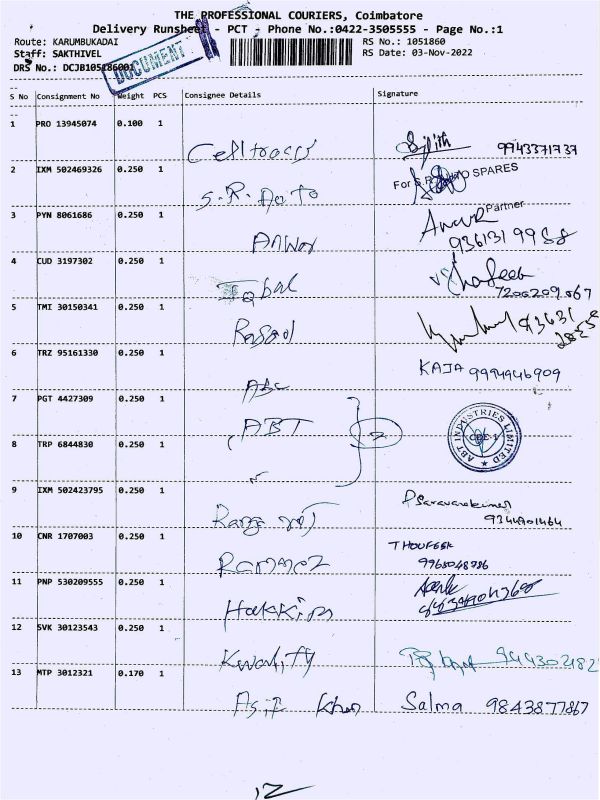 THE PROFESSIONAL COURIERS, Coimbatore
Delivery Runsheet - PCT - Phone No.:0422-3505555 - Page No.:1
Route: KARUMBUKADAI RS No.: 1051860
Staff: SAKTHIVEL RS Date: 03-Nov-2022
DRS No.: DCJB105186001
DOCUMENT
S No Consignment No Weight PCS Consignee Details Signature
1 PRO 13945074 0.100 1
9943371737
2 IXM 502469326 0.250 1 S.R. Auto
For S.R. SPARES
Partner
3 PYN 8061686 0.250 1 Anwar
9361319988
4 CUD 3197302 0.250 1 Iqbal
7200209567
5 TMI 30150341 0.250 1 Rasool
6 TRZ 95161330 0.250 1 ABC KAJA 9994946909
7 PGT 4427309 0.250 1 ABT 2
ABT INDUSTRIES LIMITED
8 TRP 6844830 0.250 1
9 IXM 502423795 0.250 1
9344901464
10 CNR 1707003 0.250 1 THOUFEEK
9965048786
11 PNP 530209555 0.250 1 Hakkim
12 SVK 30123543 0.250 1 Kwality
13 MTP 3012321 0.170 1 Asif Khan Salma 9843877867
12